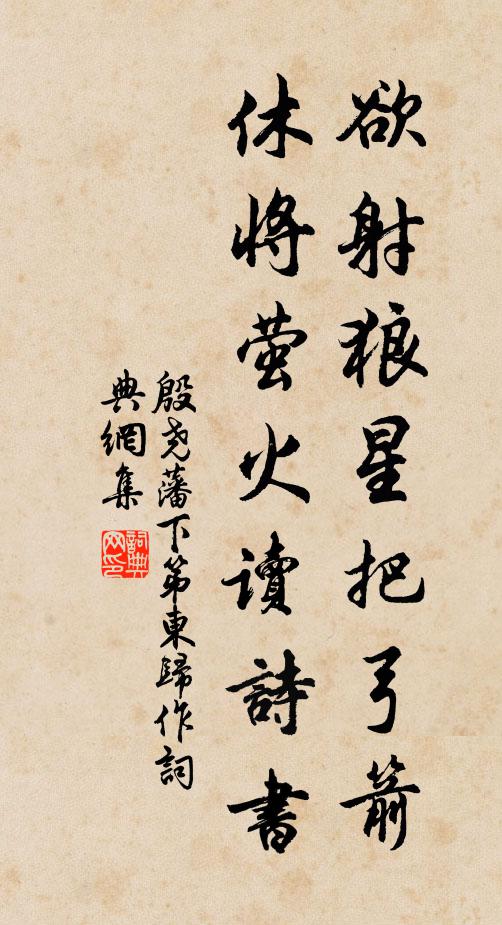 欲射狼星把弓箭
休將萤火讀詩書
殷尧藩下第東歸作詞
典網集
詞典
网印